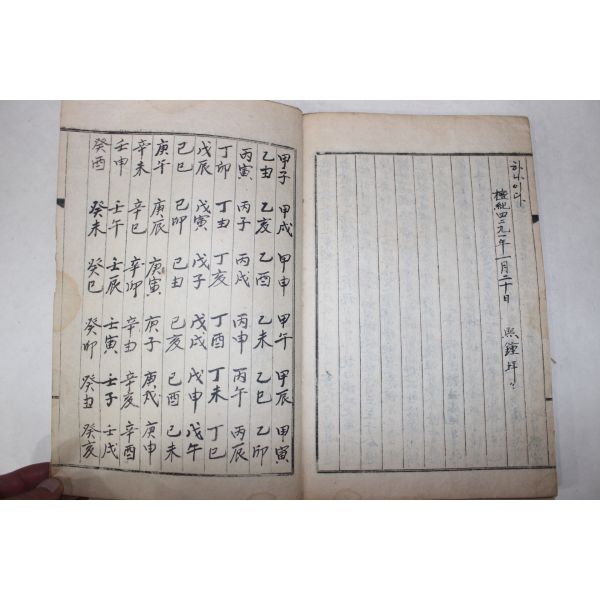 하나이다
檀紀四二九一年一月二十日
照鐘 拜
甲子 甲戌 甲申 甲午 甲辰 甲寅
乙丑 乙亥 乙酉 乙未 乙巳 乙卯
丙寅 丙子 丙戌 丙申 丙午 丙辰
丁卯 丁丑 丁亥 丁酉 丁未 丁巳
戊辰 戊寅 戊子 戊戌 戊申 戊午
己巳 己卯 己丑 己亥 己酉 己未
庚午 庚辰 庚寅 庚子 庚戌 庚申
辛未 辛巳 辛卯 辛丑 辛亥 辛酉
壬申 壬午 壬辰 壬寅 壬子 壬戌
癸酉 癸未 癸巳 癸卯 癸丑 癸亥